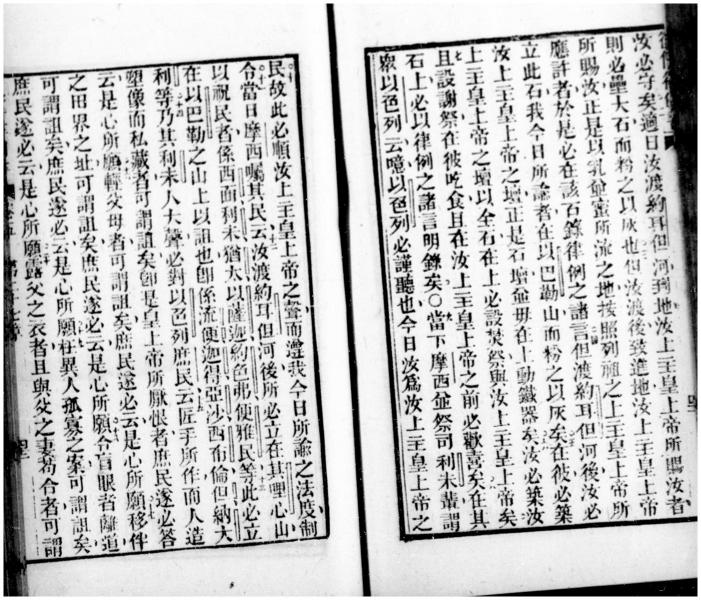 汝必守矣適日汝渡約耳但河到地汝上主皇上帝所賜汝者
則必壘大石而粉之以灰也但汝渡後致進地汝上主皇上帝
所賜汝正是以乳並蜜所流之地按照列祖之上主皇上帝所
應許者於是必在該石錄律例之諸言但渡約耳但河後汝必
立此石我今日所諭者在以巴勒山而粉之以灰矣在彼必築
汝上主皇上帝之壇正是石壇並毋在上動鐵器矣汝必築汝
上主皇上帝之壇以全石在上必設焚祭與汝上主皇上帝矣
且設謝祭在彼吃食且在汝上主皇上帝之前必歡喜矣在其
石上必以律例之諸言明錄矣○當下摩西並祭司利未輩謂
眾以色列云噫以色列必謹聽也今日汝爲汝上主皇上帝之
民故此必順汝上主皇上帝之聲而遵我今日所諭之法度制
令當日摩西囑其民云汝渡約耳但河後所必立在其理心山
以祝民者係西面利未猶大以薩迦約色弗便雅民等此必立
在以巴勒之山上以詛也卽係流便迦得亞沙西布倫但納大
利等乃其利未人大聲必對以色列庶民云匠手所作而人造
塑像而私藏者可謂詛矣卽是皇上帝所厭恨者庶民遂必答
云是心所願輕父母者可謂詛矣庶民遂必云是心所願移伴
之田界之址可謂詛矣庶民遂必云是心所願令盲眼者離道
可謂詛矣庶民遂必云是心所願枉異人孤寡之案可謂詛矣
庶民遂必云是心所願露父之衣者且與父之妻苟合者可謂